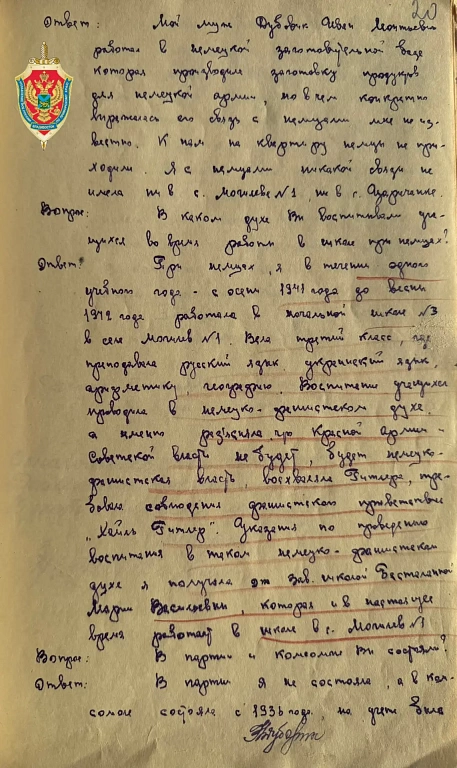 20
Ответ: Мой муж Дубовик Иван Леонтьевич
работал в немецкой заготовительной базе
которая производила заготовку продуктов
для немецкой армии, но в чем конкретно
выражалась его связь с немцами мне не из-
вестно. К нам на квартиру немцы не при-
ходили. Я с немцами никакой связи не
имела ни в с. Могилеве №1, ни в с. Царичанке.
Вопрос: В каком духе Вы воспитывали уча-
щихся во время работы в школе при немцах?
Ответ: При немцах, я в течении одного
учебного года - с осени 1941 года до весны
1942 года работала в начальной школе №3
в селе Могилев №1. Вела третий класс, где
преподавала русский язык, украинский язык,
арифметику, географию. Воспитание учащихся
проводила в немецко-фашистском духе,
а именно раз'ясняла, что Красной армии -
Советской власти не будет, будет немецко-
фашистская власть, восхваляла Гитлера, тре-
бовала соблюдения фашистского приветствие
„Хайль Гитлер". Указания по проведению
воспитания в таком немецко-фашистском
духе я получала от Зав. школой Бесталанной
Марии Васильевны, которая и в настоящее
время работает в школе в с. Могилев №1
Вопрос: В партии и комсомоле Вы состояли?
Ответ: В партии я не состояла, а в ком-
сомоле состояла с 1936 года, на учете была